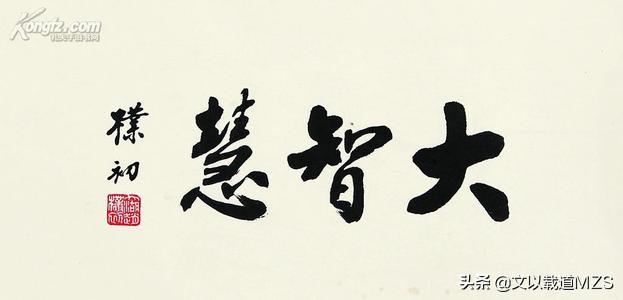 大智慧
樸初
Kongfz.com
孔夫子旧书网
头条 @文以载道MZS